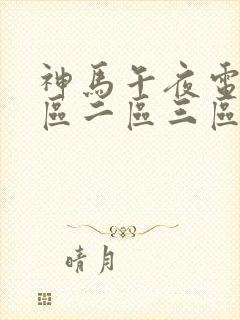 神馬午夜電
區二區三區
晴月